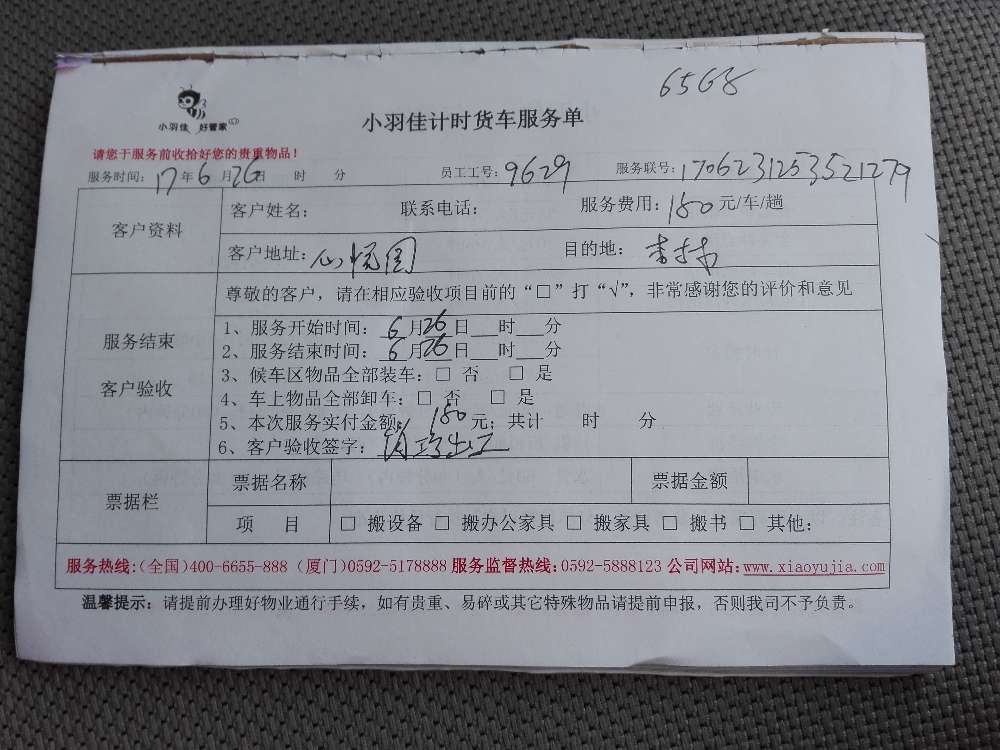 6568
小羽佳 好管家
小羽佳计时货车服务单
请您于服务前收拾好您的贵重物品！
服务时间：17年6月26日 时 分 员工工号：9629 服务联号：1706231253521279
客户资料
客户姓名： 联系电话： 服务费用：180元/车/趟
客户地址：心悦园 目的地：杏林
服务结束
客户验收
尊敬的客户，请在相应验收项目前的“□”打“√”，非常感谢您的评价和意见
1、服务开始时间：6月26日 时 分
2、服务结束时间：6月26日 时 分
3、候车区物品全部装车：□ 否 □ 是
4、车上物品全部卸车：□ 否 □ 是
5、本次服务实付金额：180元；共计 时 分
6、客户验收签字：
票据栏
票据名称 票据金额
项 目 □ 搬设备 □ 搬办公家具 □ 搬家具 □ 搬书 □ 其他：
服务热线：（全国）400-6655-888（厦门）0592-5178888 服务监督热线：0592-5888123 公司网站：www.xiaoyujia.com
温馨提示：请提前办理好物业通行手续，如有贵重、易碎或其它特殊物品请提前申报，否则我司不予负责。